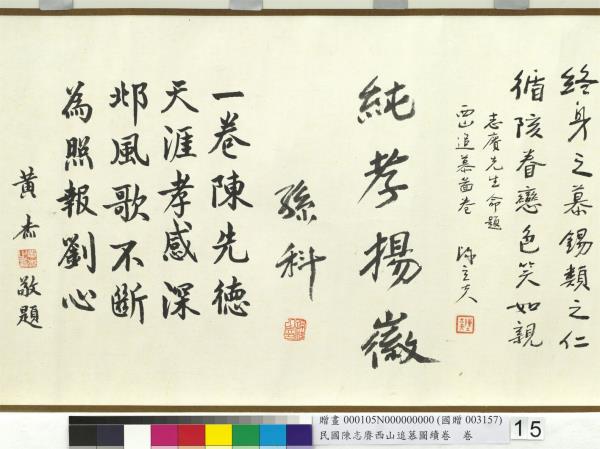 終身之慕錫類之仁
循陔眷戀色笑如親
志賡先生命題
西山追慕啚卷
陳立夫
純孝揚徽
孫科
一卷陳先德
天涯孝感深
邶風歌不斷
為照報劉心
黃杰
敬題
贈畫 000105N000000000 (國贈 003157)
民國陳志賡西山追慕圖續卷 卷
15